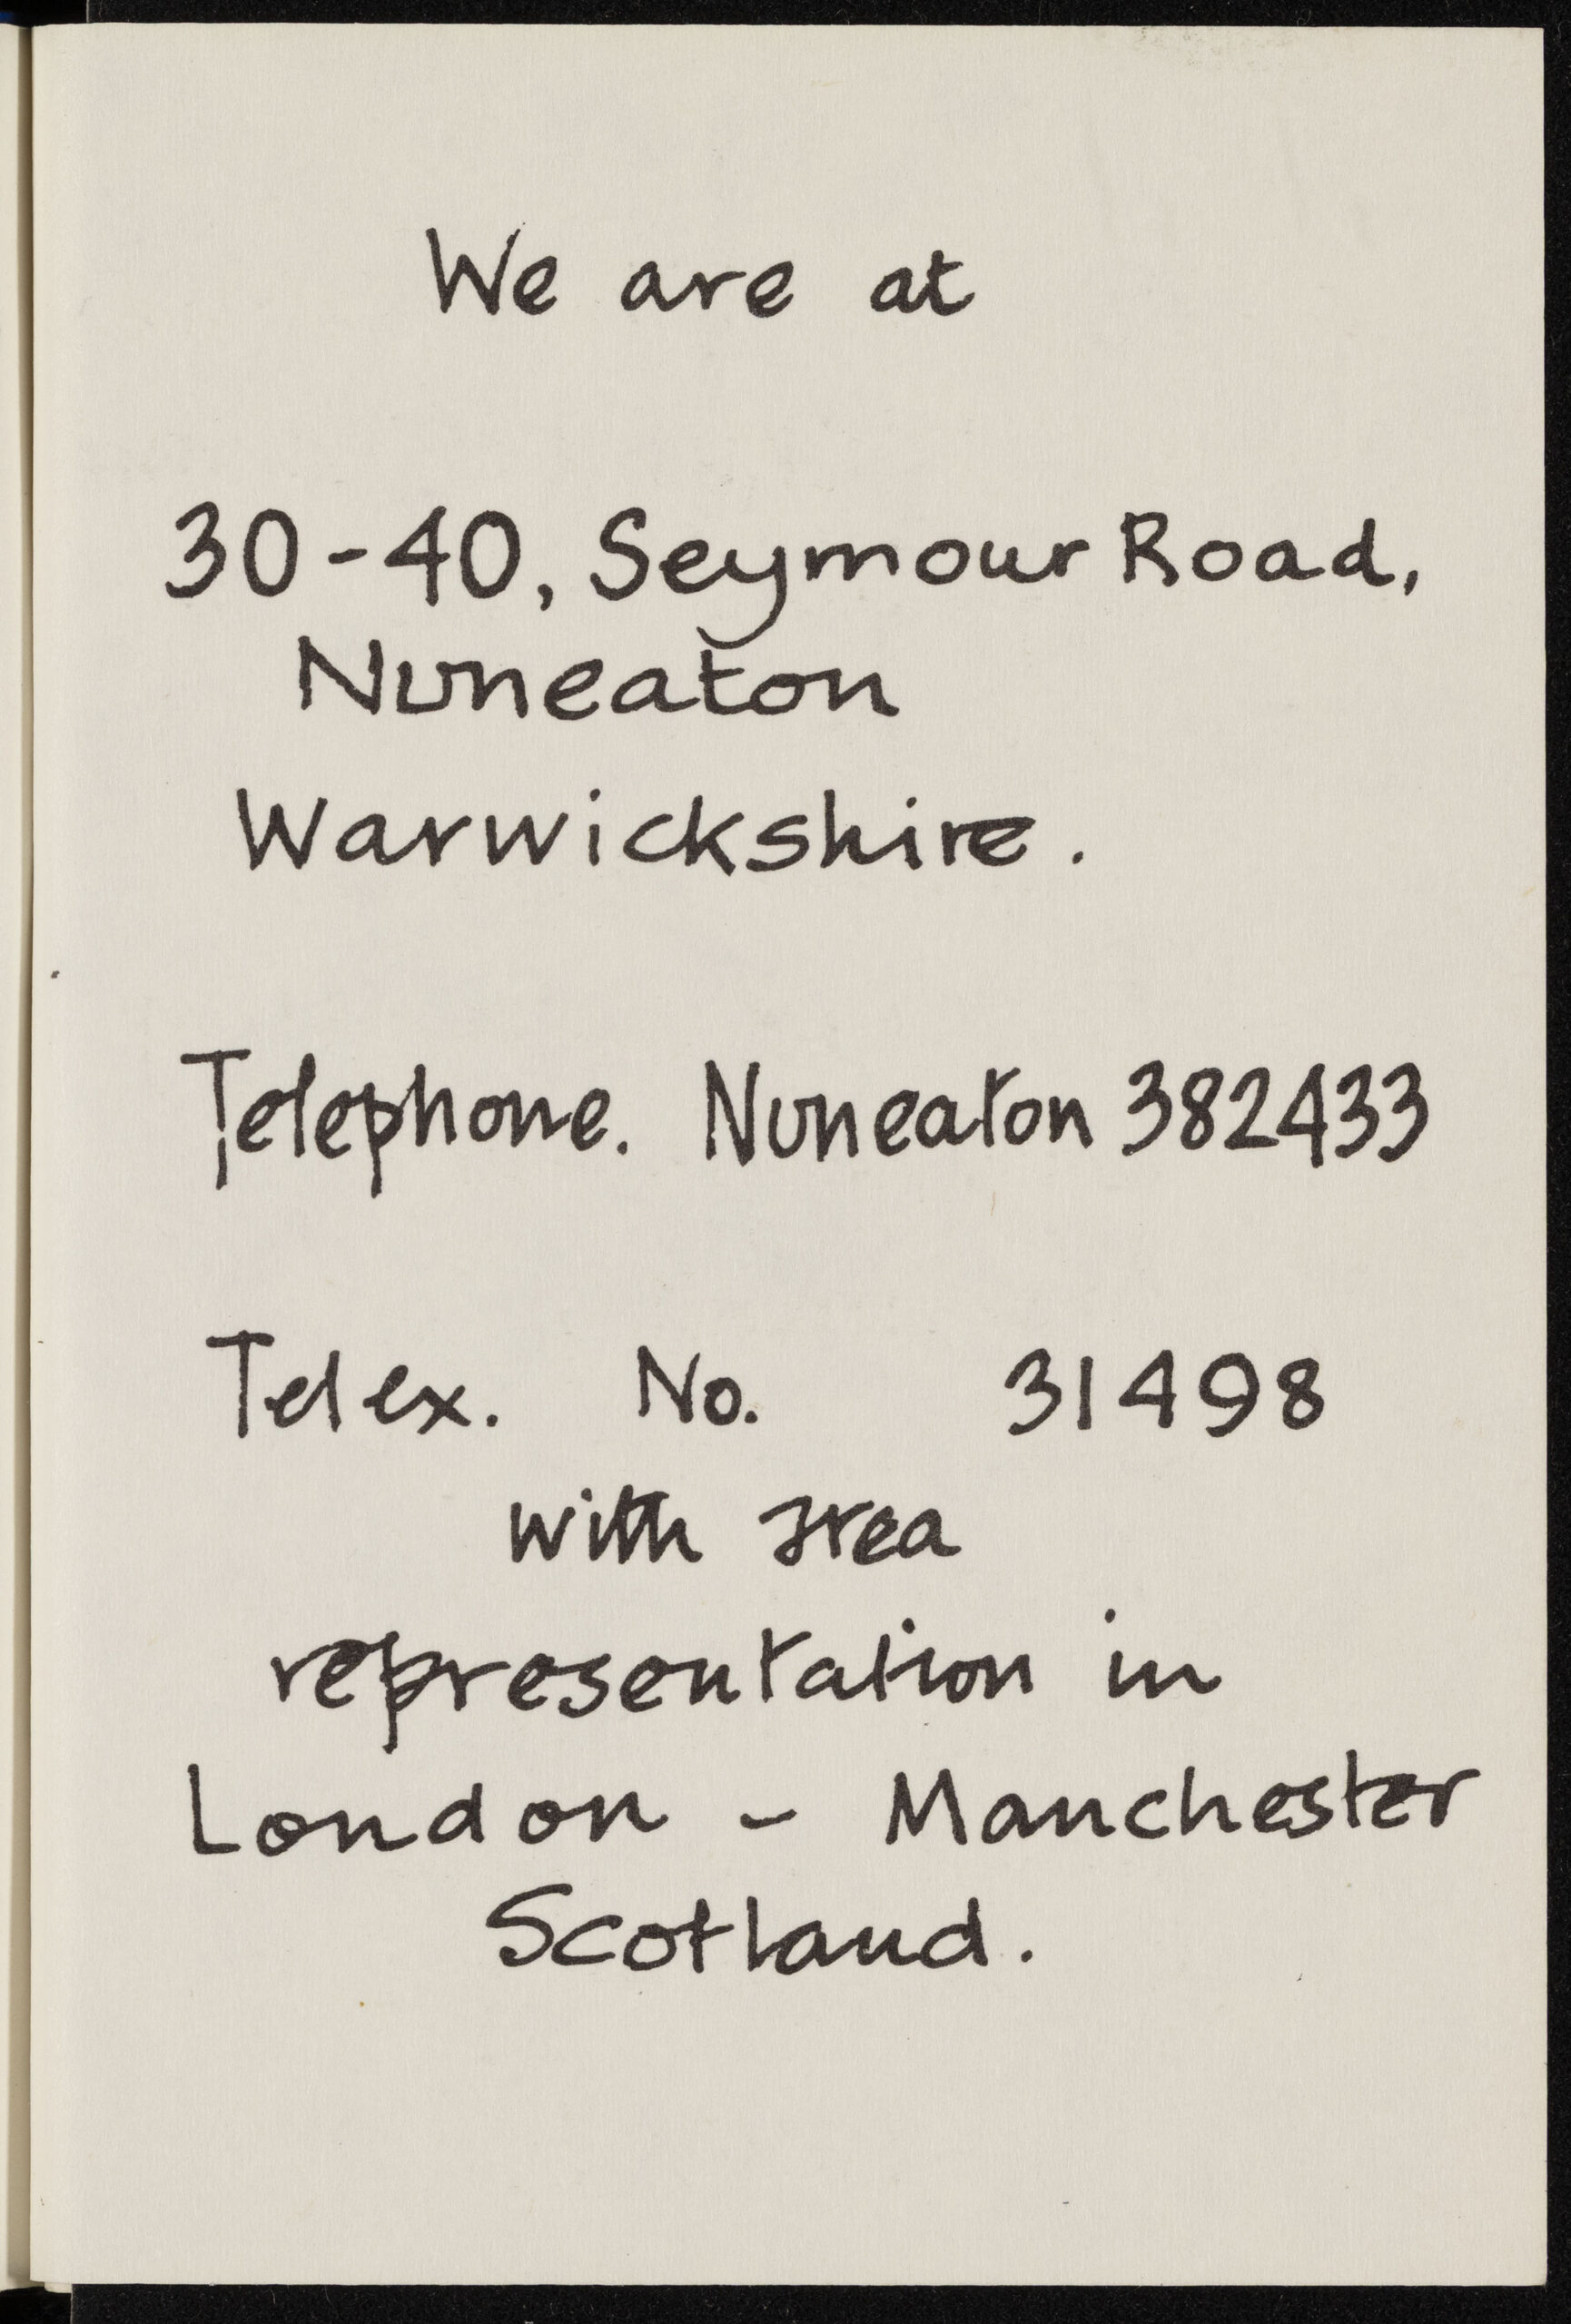 We are at
30-40, Seymour Road,
Nuneaton
Warwickshire.
Telephone. Nuneaton 382433
Telex. No. 31498
with area
representation in
London - Manchester
Scotland.